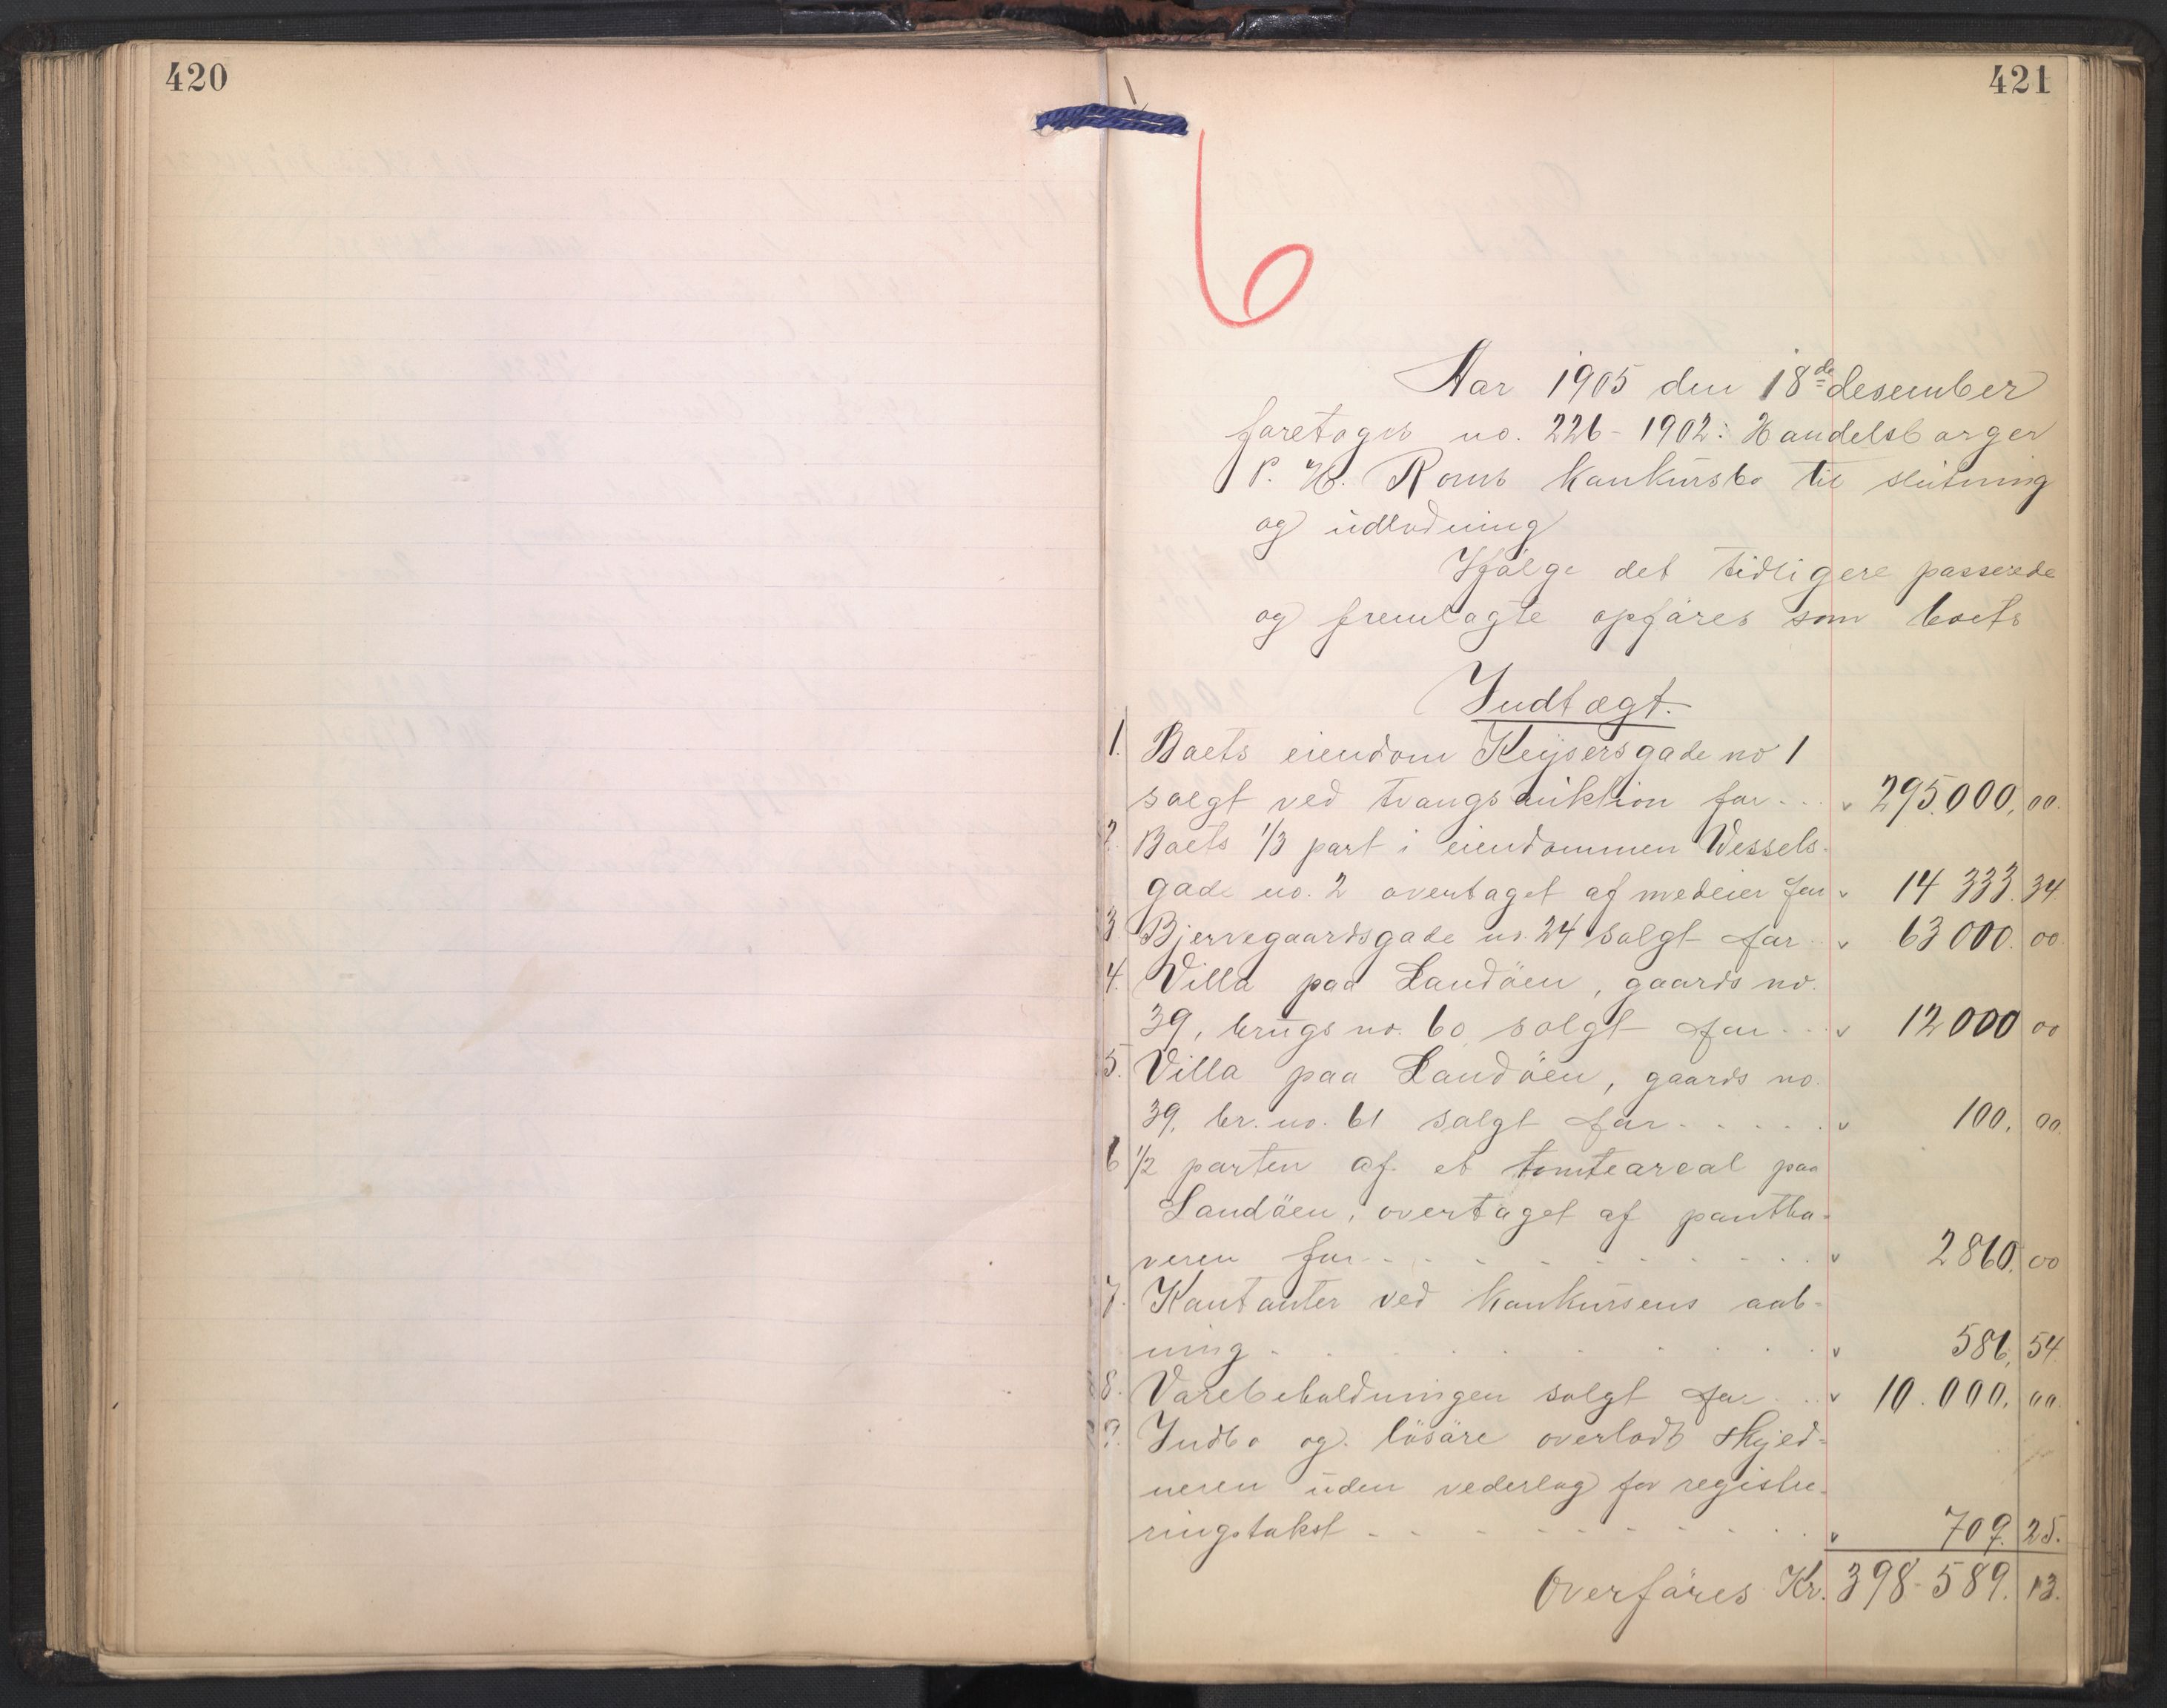 420
421
6
Aar 1905 den 18de desember
foretoges no. 226-1902: Handelsborger
P. H. Roms konkursbo til slutning
og udlodning
Ifølge det tidligere passerede
og fremlagte opføres som boets
Indtægt.
1. Boets eiendom Keysersgade no 1
solgt ved tvangsauktion for - - - " 295.000,00.
2. Boets 1/3 part i eiendommen Wessels-
gade no. 2 overtaget af medeier for " 14 333.34
3 Bjerregaardsgade no. 24 solgt for - " 63 000.00
4. Villa paa Landøen, gaards no.
39, brugs no. 60 solgt for - - - " 12 000 00
5. Villa paa Landøen, gaards no.
39, br. no. 61 solgt for - - - - - " 100,00.
6 1/2 parten af et tomteareal paa
Landøen, overtaget af pantha-
veren for - - - - - - - - - " 2860.00
7. Kontanter ved konkursens aab-
ning - - - - - - - - - " 586,54
8. Varebeholdningen solgt for - - " 10.000,00.
9. Indbo og løsøre overladt skyld-
neren uden vederlag for registre-
ringstakst - - - - - - - - - " 709.25.
Overføres Kr. 398-589.13.